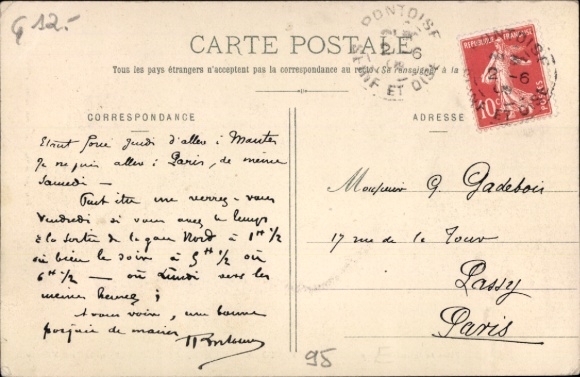 G 12.-
CARTE POSTALE
Tous les pays étrangers n'acceptent pas la correspondance au recto (Se renseigner à la
CORRESPONDANCE
ADRESSE
PONTOISE
SEINE ET OISE
2-6
REPUBLIQUE FRANÇAISE
10c
Etant forcé jeudi d'aller à Mantes
Je ne puis aller à Paris, de même
Samedi —
Peut être me verrez-vous
Vendredi si vous avez le temps
à la sortie de la gare Nord à 1H 1/2
ou bien le soir à 5H 1/2 ou
6H 1/2 — ou Lundi vers les
mêmes heures ;
A vous voir, une bonne
poignée de mains
Monsieur G. Gadebois
17 rue de la Tour
Passy
Paris
95
E